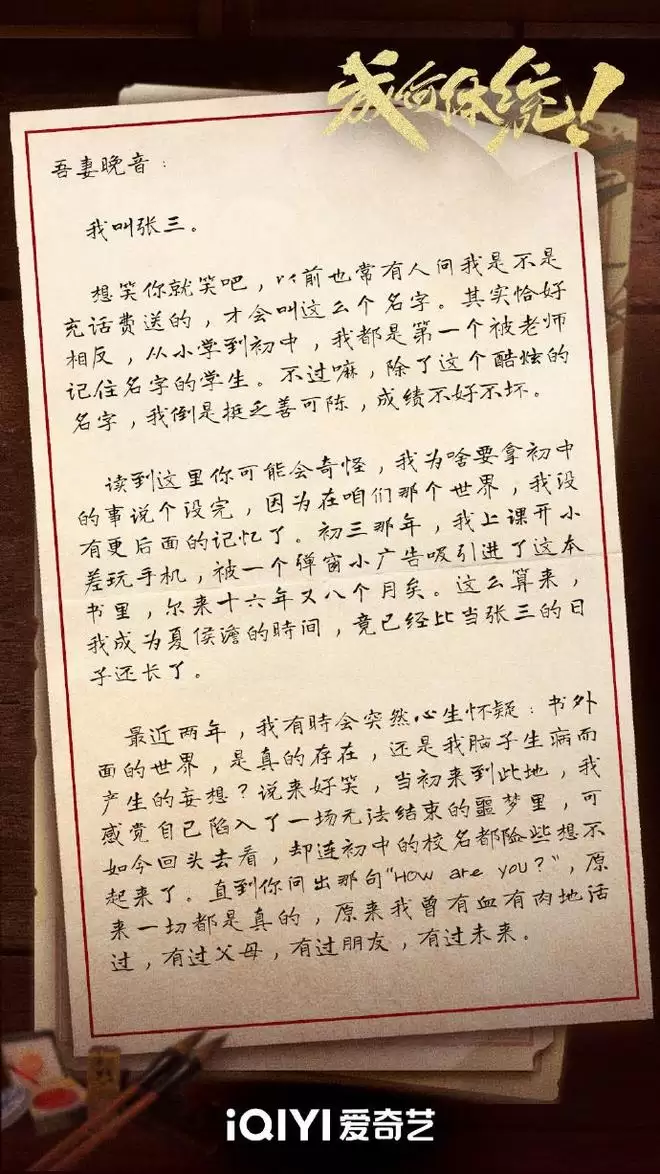 成何体统!
吾妻晚音：
我叫张三。
想笑你就笑吧，以前也常有人问我是不是
充话费送的，才会叫这么个名字。其实恰好
相反，从小学到初中，我都是第一个被老师
记住名字的学生。不过嘛，除了这个酷炫的
名字，我倒是挺乏善可陈，成绩不好不坏。
读到这里你可能会奇怪，我为啥要拿初中
的事说个没完，因为在咱们那个世界，我没
有更后面的记忆了。初三那年，我上课开小
差玩手机，被一个弹窗小广告吸引进了这本
书里，尔来十六年又八个月矣。这么算来，
我成为夏侯澹的時间，竟已经比当张三的日
子还长了。
最近两年，我有時会突然心生怀疑：书外
面的世界，是真的存在，还是我脑子生病而
产生的妄想？说来好笑，当初来到此地，我
感觉自己陷入了一场无法结束的噩梦里，可
如今回头去看，却连初中的校名都险些想不
起来了。直到你问出那句"How are you？"，原
来一切都是真的，原来我曾有血有肉地活
过，有过父母，有过朋友，有过未来。
iQIYI 爱奇艺